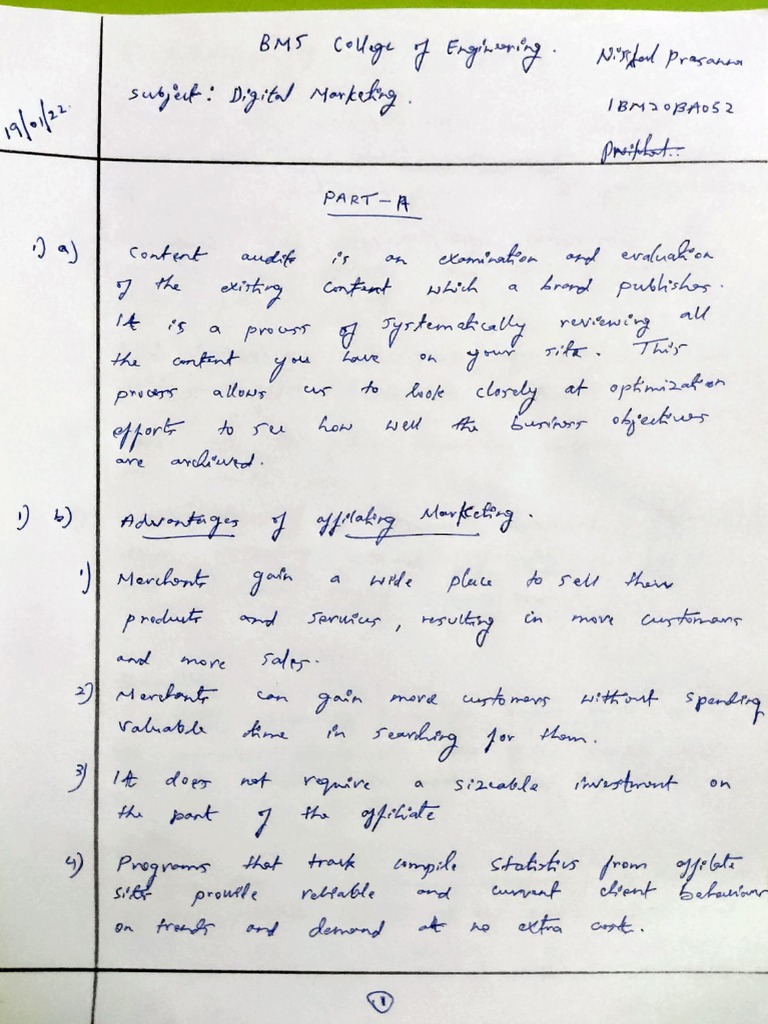 BMS College of Engineering.
Prasanna
subject: Digital Marketing.
19/01/22.
1BM20BA052
PART-A
1) a) Content audits is an examination and evaluation
of the existing content which a brand publishes.
It is a process of systematically reviewing all
the content you have on your site. This
process allows us to look closely at optimization
efforts to see how well the business objectives
are archived.
1) b) Advantages of affilating Marketing.
1) Merchants gain a wide place to sell their
products and services, resulting in more customers
and more sales.
2) Merchants can gain more customers without spending
valuable time in searching for them.
3) It does not require a sizeable investment on
the part of the affiliate
4) Programs that track compile statistics from affilate
sites provide reliable and current client behaviour
on trends and demand at no extra cost.
1